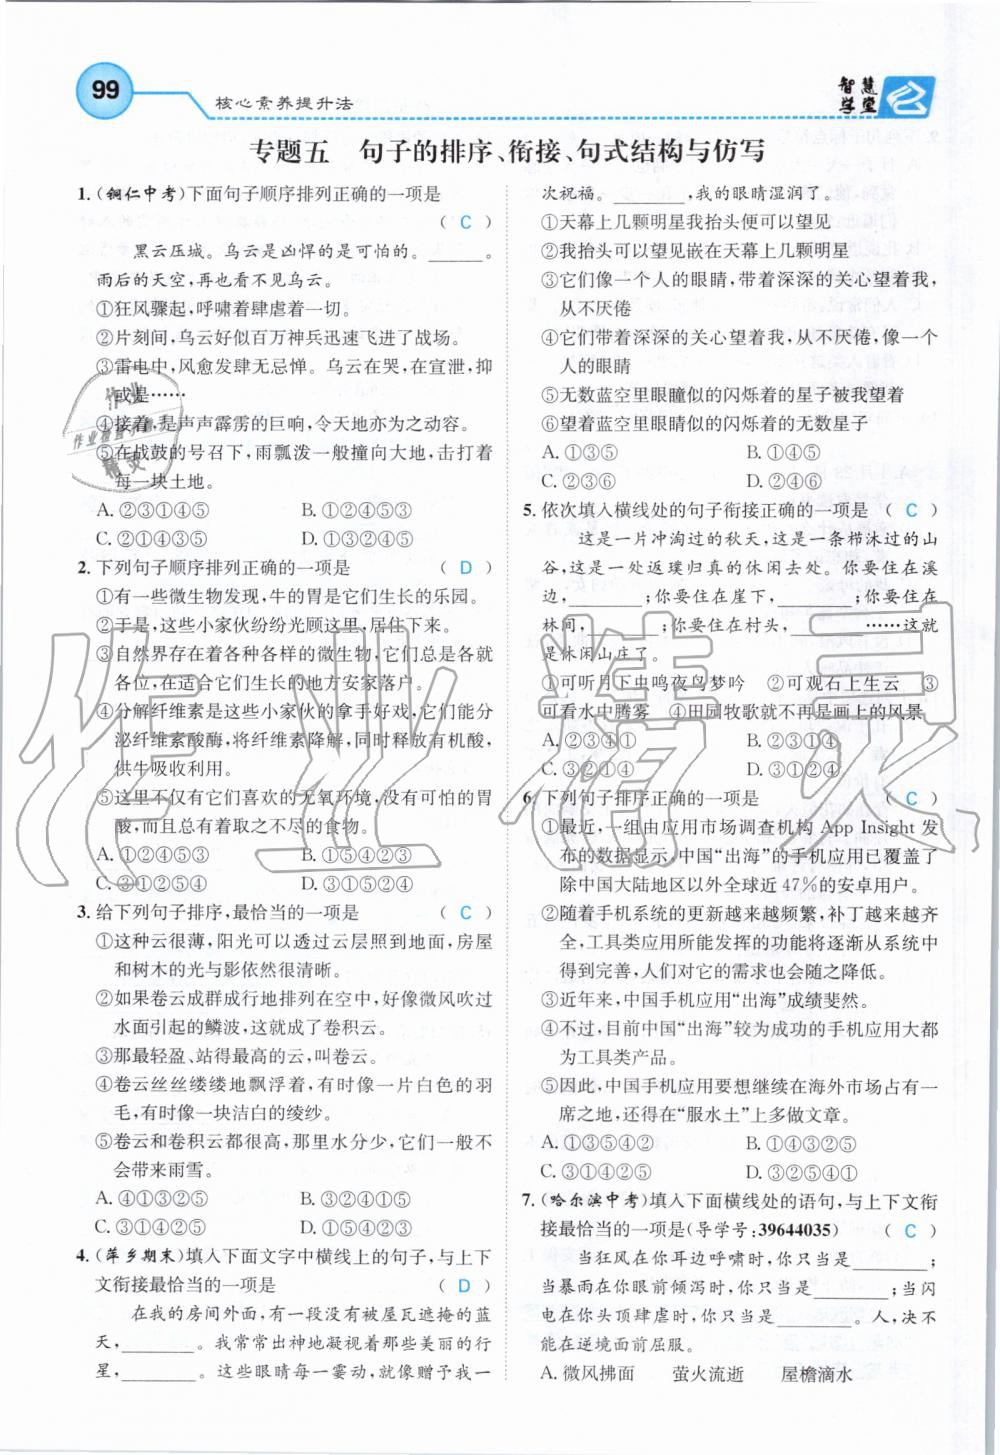 99
核心素养提升法
智慧学堂
专题五　句子的排序、衔接、句式结构与仿写
1.(铜仁中考)下面句子顺序排列正确的一项是
( C )
黑云压城。乌云是凶悍的是可怕的。______。
雨后的天空,再也看不见乌云。
①狂风骤起,呼啸着肆虐着一切。
②片刻间,乌云好似百万神兵迅速飞进了战场。
③雷电中,风愈发肆无忌惮。乌云在哭,在宣泄,抑
或是……
④接着,是声声霹雳的巨响,令天地亦为之动容。
⑤在战鼓的号召下,雨瓢泼一般撞向大地,击打着
每一块土地。
A. ②③①④⑤ B. ①②③④⑤
C. ②①④⑤③ D. ①③②④⑤
2. 下列句子顺序排列正确的一项是 ( D )
①有一些微生物发现,牛的胃是它们生长的乐园。
②于是,这些小家伙纷纷光顾这里,居住下来。
③自然界存在着各种各样的微生物,它们总是各就
各位,在适合它们生长的地方安家落户。
④分解纤维素是这些小家伙的拿手好戏,它们能分
泌纤维素酸酶,将纤维素降解,同时产生有机酸,
供牛吸收利用。
⑤这里不仅有它们喜欢的无氧环境,没有可怕的胃
酸,而且总有着取之不尽的食物。
A. ①②④⑤③ B. ①⑤②④③
C. ③①②④⑤ D. ③①⑤②④
3. 给下列句子排序,最恰当的一项是 ( C )
①这种云很薄,阳光可以透过云层照到地面,房屋
和树木的光与影依然很清晰。
②如果卷云成群成行地排列在空中,好像微风吹过
水面引起的鳞波,这就成了卷积云。
③那最轻盈、站得最高的云,叫卷云。
④卷云丝丝缕缕地飘浮着,有时像一片白色的羽
毛,有时像一块洁白的绫纱。
⑤卷云和卷积云都很高,那里水分少,它们一般不
会带来雨雪。
A. ④①③②⑤ B. ③④②①⑤
C. ③①④②⑤ D. ④③②①⑤
4.(萍乡期末)填入下面文字中横线上的句子,与上下
文衔接最恰当的一项是 ( D )
在我的房间外面,有一段没有被屋瓦遮掩的蓝
天,______。我常常出神地凝视着那些美丽的行
星,______。这些眼睛每一霎动,就像赐与我一
次祝福。______,我的眼睛湿润了。
①天幕上几颗明星我抬头便可以望见
②我抬头可以望见嵌在天幕上几颗明星
③它们像一个人的眼睛,带着深深的关心望着我,
从不厌倦
④它们带着深深的关心望着我,从不厌倦,像一个
人的眼睛
⑤无数蓝空里眼瞳似的闪烁着的星子被我望着
⑥望着蓝空里眼睛似的闪烁着的无数星子
A. ①③⑤ B. ①④⑤
C. ②③⑥ D. ②④⑥
5. 依次填入横线处的句子衔接正确的一项是 ( C )
这是一片冲淘过的秋天,这是一条栉沐过的山
谷,这是一处返璞归真的休闲去处。你要住在溪
边,______;你要住在崖下,______;你要住在
林间,______;你要住在村头,______……这就
是休闲山庄了。
①可听月下虫鸣夜鸟梦吟　②可观石上生云　③
可看水中腾雾　④田园牧歌就不再是画上的风景
A. ②③④① B. ②③①④
C. ③②①④ D. ③①②④
6. 下列句子排序正确的一项是 ( C )
①最近,一组由应用市场调查机构 App Insight 发
布的数据显示,中国“出海”的手机应用已覆盖了
除中国大陆地区以外全球近 47%的安卓用户。
②随着手机系统的更新越来越频繁,补丁越来越齐
全,工具类应用所能发挥的功能将逐渐从系统中
得到完善,人们对它的需求也会随之降低。
③近年来,中国手机应用“出海”成绩斐然。
④不过,目前中国“出海”较为成功的手机应用大都
为工具类产品。
⑤因此,中国手机应用要想继续在海外市场占有一
席之地,还得在“服水土”上多做文章。
A. ①③⑤④② B. ①④③②⑤
C. ③①④②⑤ D. ③④①②⑤
7.(哈尔滨中考)填入下面横线处的语句,与上下文衔
接最恰当的一项是(导学号:39644035) ( C )
当狂风在你耳边呼啸时,你只当是______;
当暴雨在你眼前倾泻时,你只当是______;当闪
电在你头顶肆虐时,你只当是______。人,决不
能在逆境面前屈服。
A. 微风拂面　萤火流逝　屋檐滴水